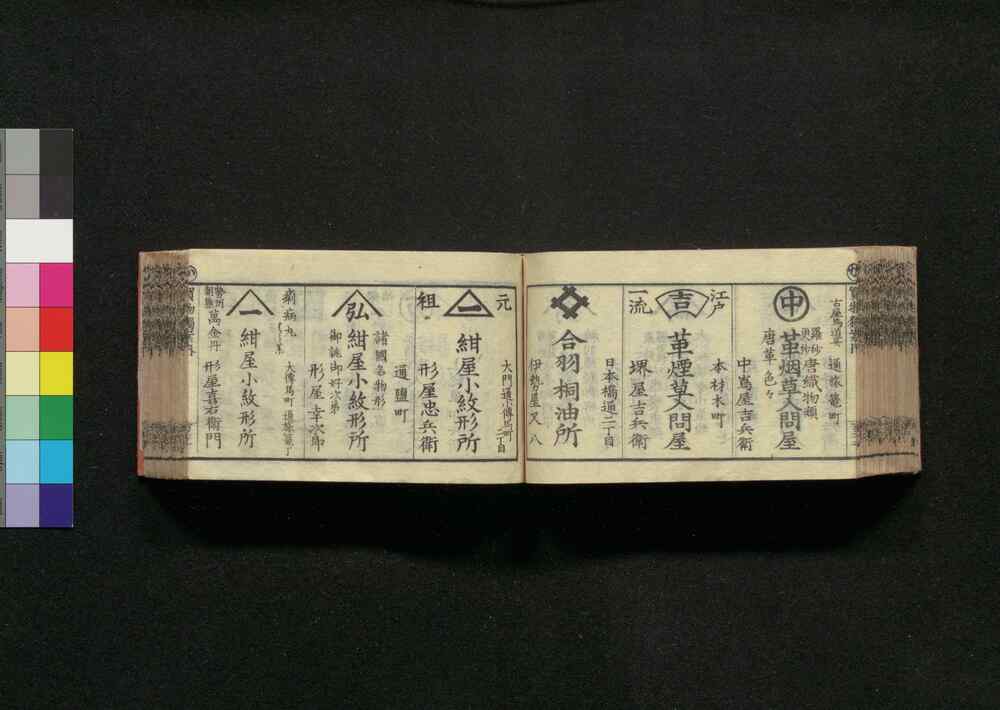 通旅籠町
中
羅紗
唐織物類
革烟草入問屋
唐革色々
中嶌屋吉兵衛
江戸
本材木町
吉
革煙草入問屋
一流
堺屋吉兵衛
日本橋通二丁目
合羽桐油所
伊勢屋又八
元
大門通小傳馬町
一
紺屋小紋形所
祖
形屋忠兵衛
通鹽町
諸國名物形
弘
紺屋小紋形所
御誂御好次第
形屋幸次郎
大傳馬町
一
紺屋小紋形所
萬金丹
形屋喜右衛門